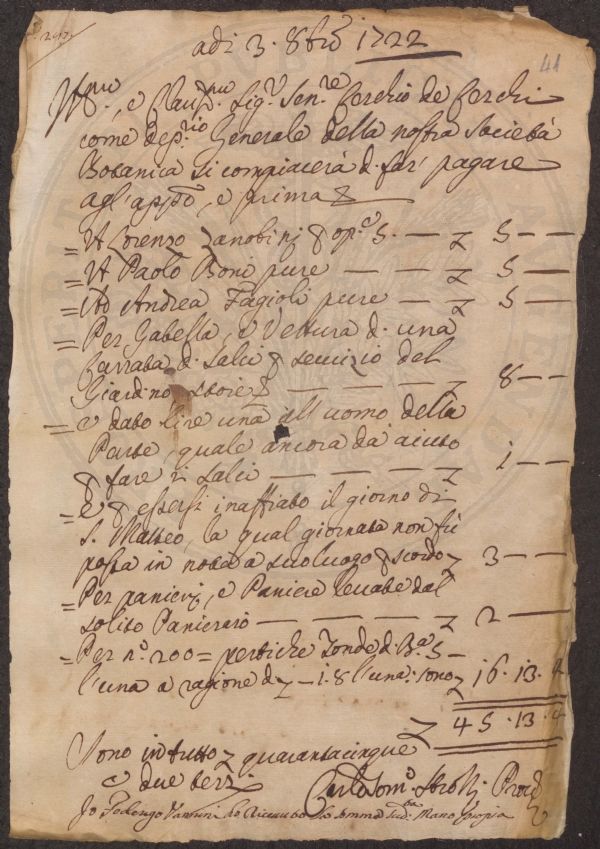 adi 3. 8bre 1722
41
Ill.mo, e Clariss.mo Sig.r Sen.re Cerchio de Cerchi
come dep.rio Generale della nostra Società
Botanica si compiacerà d. far' pagare
agl'app.o, e prima
= A Lorenzo Zanobini p op.e 5. — 5 — —
= A Paolo Boni pure — — — 5 — —
= Ad Andrea Fagioli pure — — 5 — —
= Per Gabella, e Vettura d. una
Carrata d. Salci p servizio del
Giardino — — — — 8 — —
— e dato lire una all'uomo della
Parte, quale ancora dà aiuto
p fare i Salci — — — — 1 — —
= E p essersi inaffiato il giorno di
S. Matteo, la qual giornata non fù
posta in nota a suo luogo p scordo 3 — —
= Per panieri, e Paniere levate dal
solito Panieraio — — — — 2 — —
= Per n.o 200 = pertiche tonde d. B.a 5 —
l'una a ragione d — 1. 8 l'una. sono 16. 13. 4
45. 13. 4
Sono in tutto quarantacinque
e due terzi
Prov.
Io ho ricevuto la somma Sud.a Mano propia